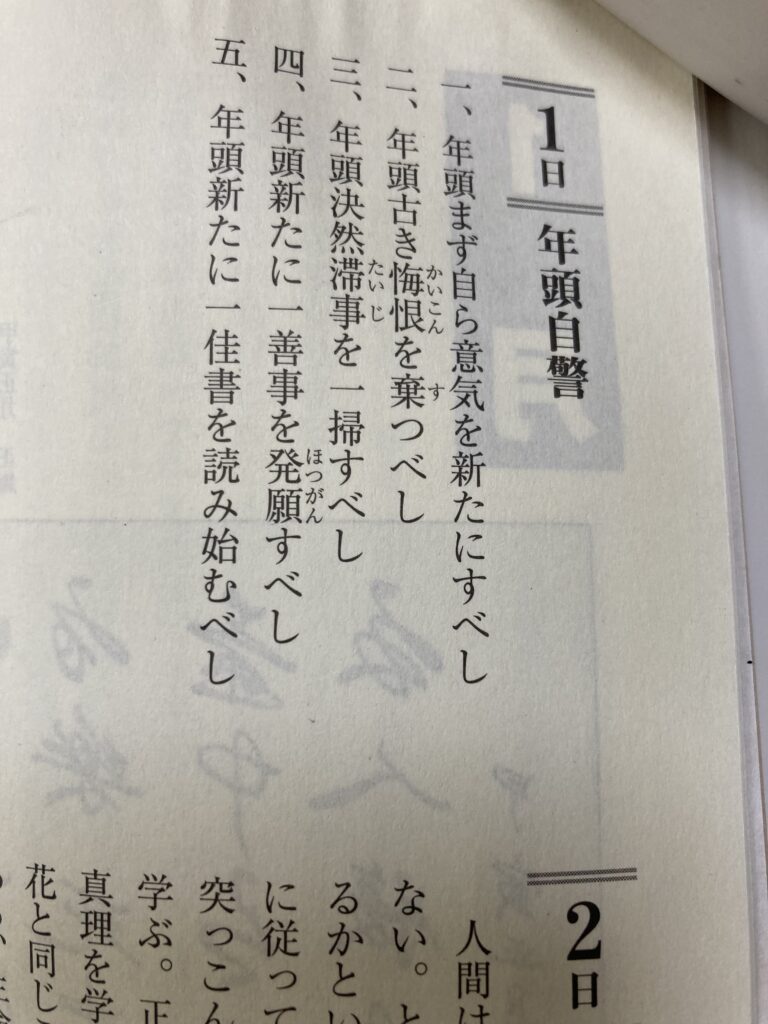 1日 年頭自警
一、年頭まず自ら意気を新たにすべし
二、年頭古き悔恨を棄つべし
三、年頭決然滞事を一掃すべし
四、年頭新たに一善事を発願すべし
五、年頭新たに一佳書を読み始むべし
2日
人間は
ない。と
るかとい
に従って
突っこん
学ぶ。正
真理を学
花と同じ